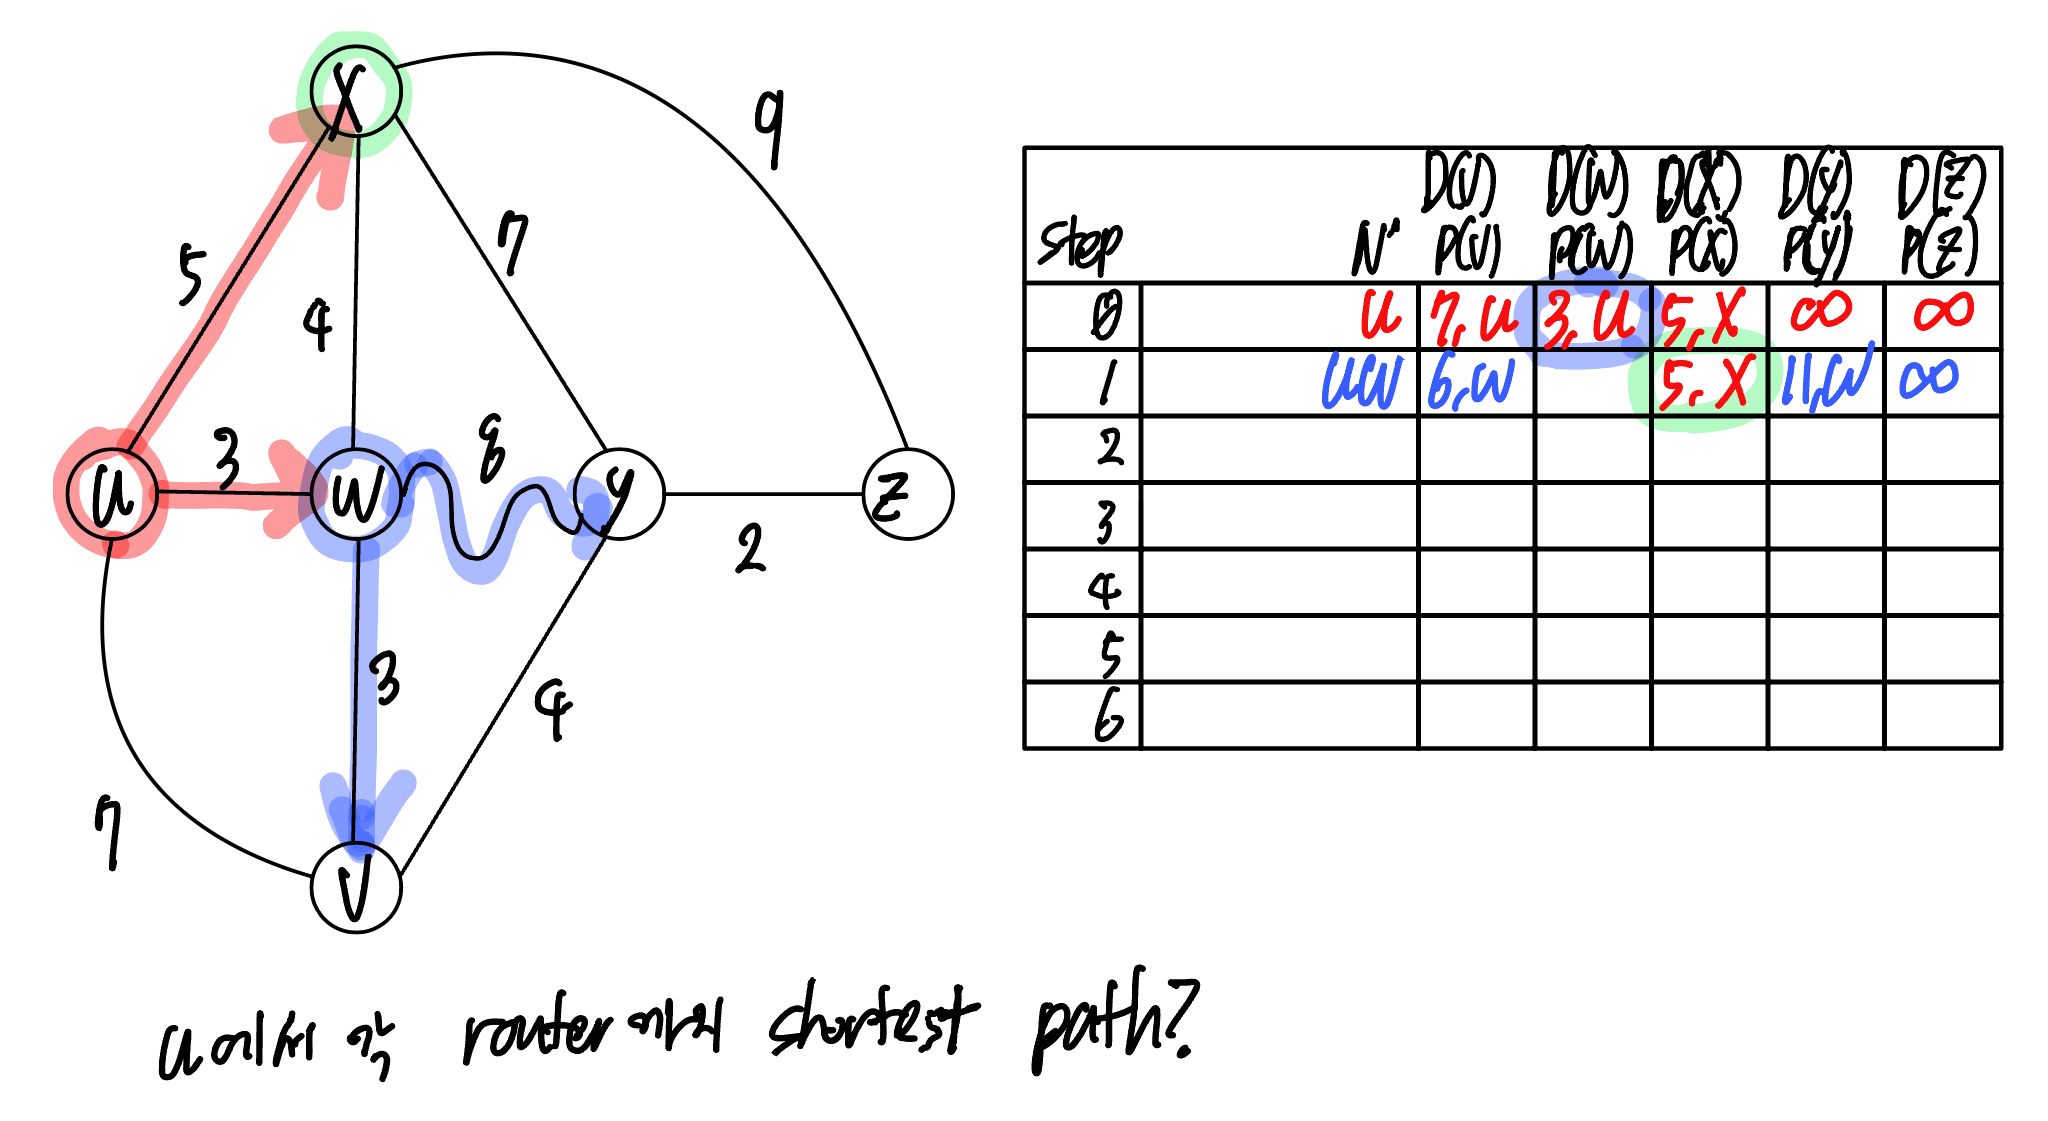 X
9
5
7
4
U
3
W
8
y
Z
2
3
4
7
V
Step N' D(V) P(V) D(W) P(W) D(X) P(X) D(y) P(y) D(Z) P(Z)
0 U 7, U 3, U 5, X ∞ ∞
1 UW 6, W 5, X 11, W ∞
2
3
4
5
6
U에서 각 router까지의 shortest path?